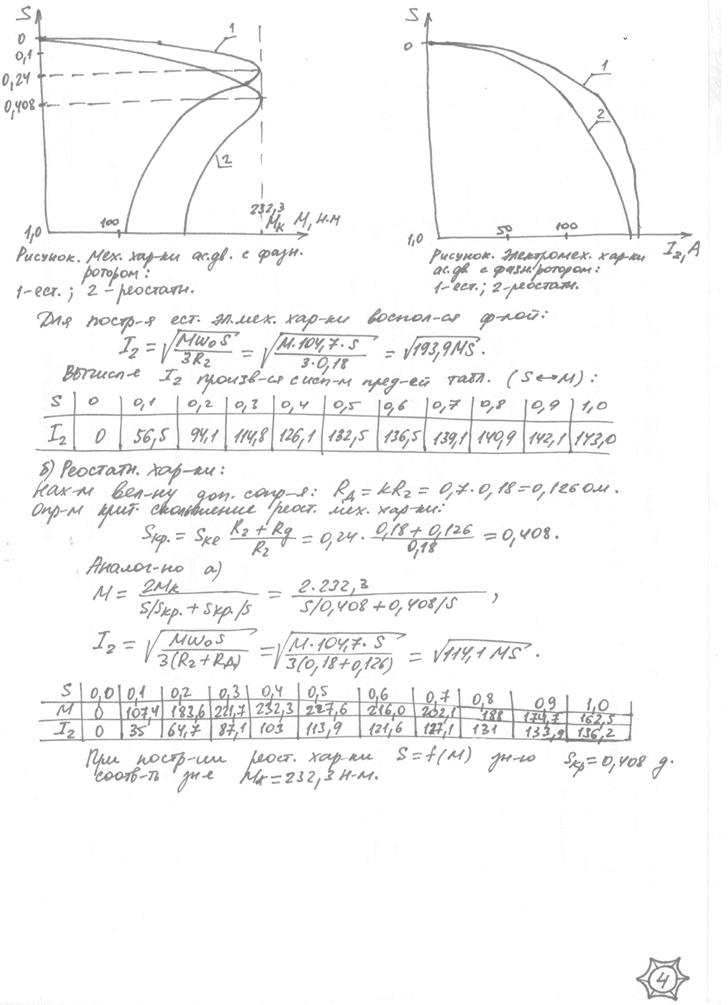 S
0
0,1
0,24
0,408
1,0
100
232,3
Mк M, Н·м
1
2
Рисунок. Мех. хар-ки ас.дв. с фазн.
ротором:
1-ест.; 2-реостатн.
S
0
1,0
50
100
I₂, А
1
2
Рисунок. Электромех. хар-ки
ас.дв с фазн.ротором:
1-ест.; 2-реостатн.
Для постр-я ест. эл.мех. хар-ки воспол-ся ф-лой:
I₂ = √(Mω₀S / 3R₂) = √(M·104,7·S / 3·0,18) = √193,9MS.
Вычисл-е I₂ произв-ся с исп-м пред-ей табл. (S↔M):
S 0 0,1 0,2 0,3 0,4 0,5 0,6 0,7 0,8 0,9 1,0
I₂ 0 56,5 94,1 114,8 126,1 132,5 136,5 139,1 140,9 142,1 143,0
б) Реостатн. хар-ки:
Нах-м вел-ну доп. сопр-я: Rд = kR₂ = 0,7·0,18 = 0,126 Ом.
Опр-м крит. скольжение реост. мех. хар-ки:
Sкр. = Sке (R₂ + Rд / R₂) = 0,24 · (0,18 + 0,126 / 0,18) = 0,408.
Аналог-но а)
M = 2Mк / (S/Sкр. + Sкр./S) = 2·232,3 / (S/0,408 + 0,408/S) ,
I₂ = √(Mω₀S / 3(R₂+Rд)) = √(M·104,7·S / 3(0,18+0,126)) = √114,1 MS .
S 0,0 0,1 0,2 0,3 0,4 0,5 0,6 0,7 0,8 0,9 1,0
M 0 107,4 183,6 221,7 232,3 227,6 216,0 202,1 188 174,7 162,5
I₂ 0 35 64,7 87,1 103 113,9 121,6 127,1 131 133,9 136,2
При постр-ии реост. хар-ки S = f(M) зн-ю Sкр = 0,408 д.
соотв-ть зн-е Mк = 232,3 Н·м.
4